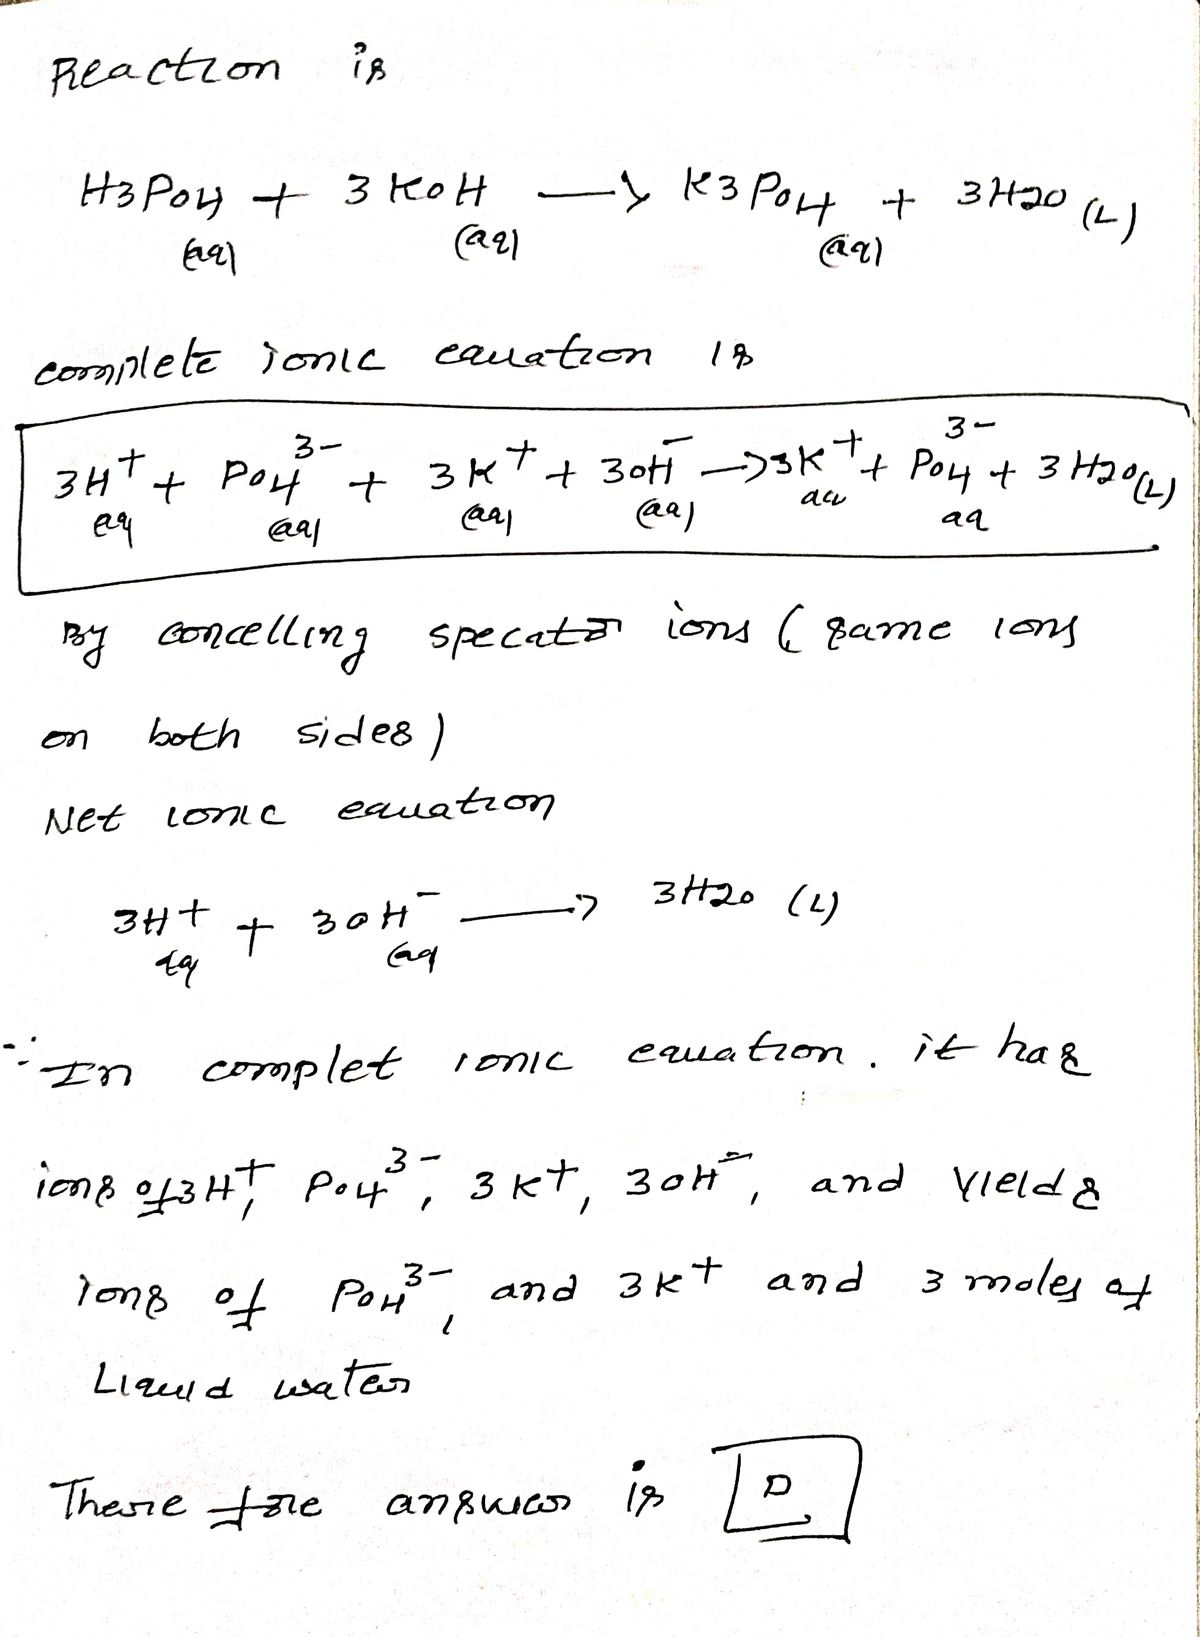 Reaction is
H3PO4 + 3 KOH —> K3PO4 + 3H2O (L)
(aq) (aq) (aq)
complete ionic equation is
3H+ + PO4 3- + 3K+ + 3OH- —> 3K+ + PO4 3- + 3H2O(L)
aq (aq) (aq) (aq) aq aq
By concelling specator ions (same ions
on both sides)
Net ionic equation
3H+ + 3OH- —> 3H2O (L)
aq (aq
∴ In complet ionic equation. it has
ions of 3H+, PO4 3-, 3K+, 3OH-, and Yields
ions of PO4 3-, and 3K+ and 3 moles of
Liquid water
There fore answer is D